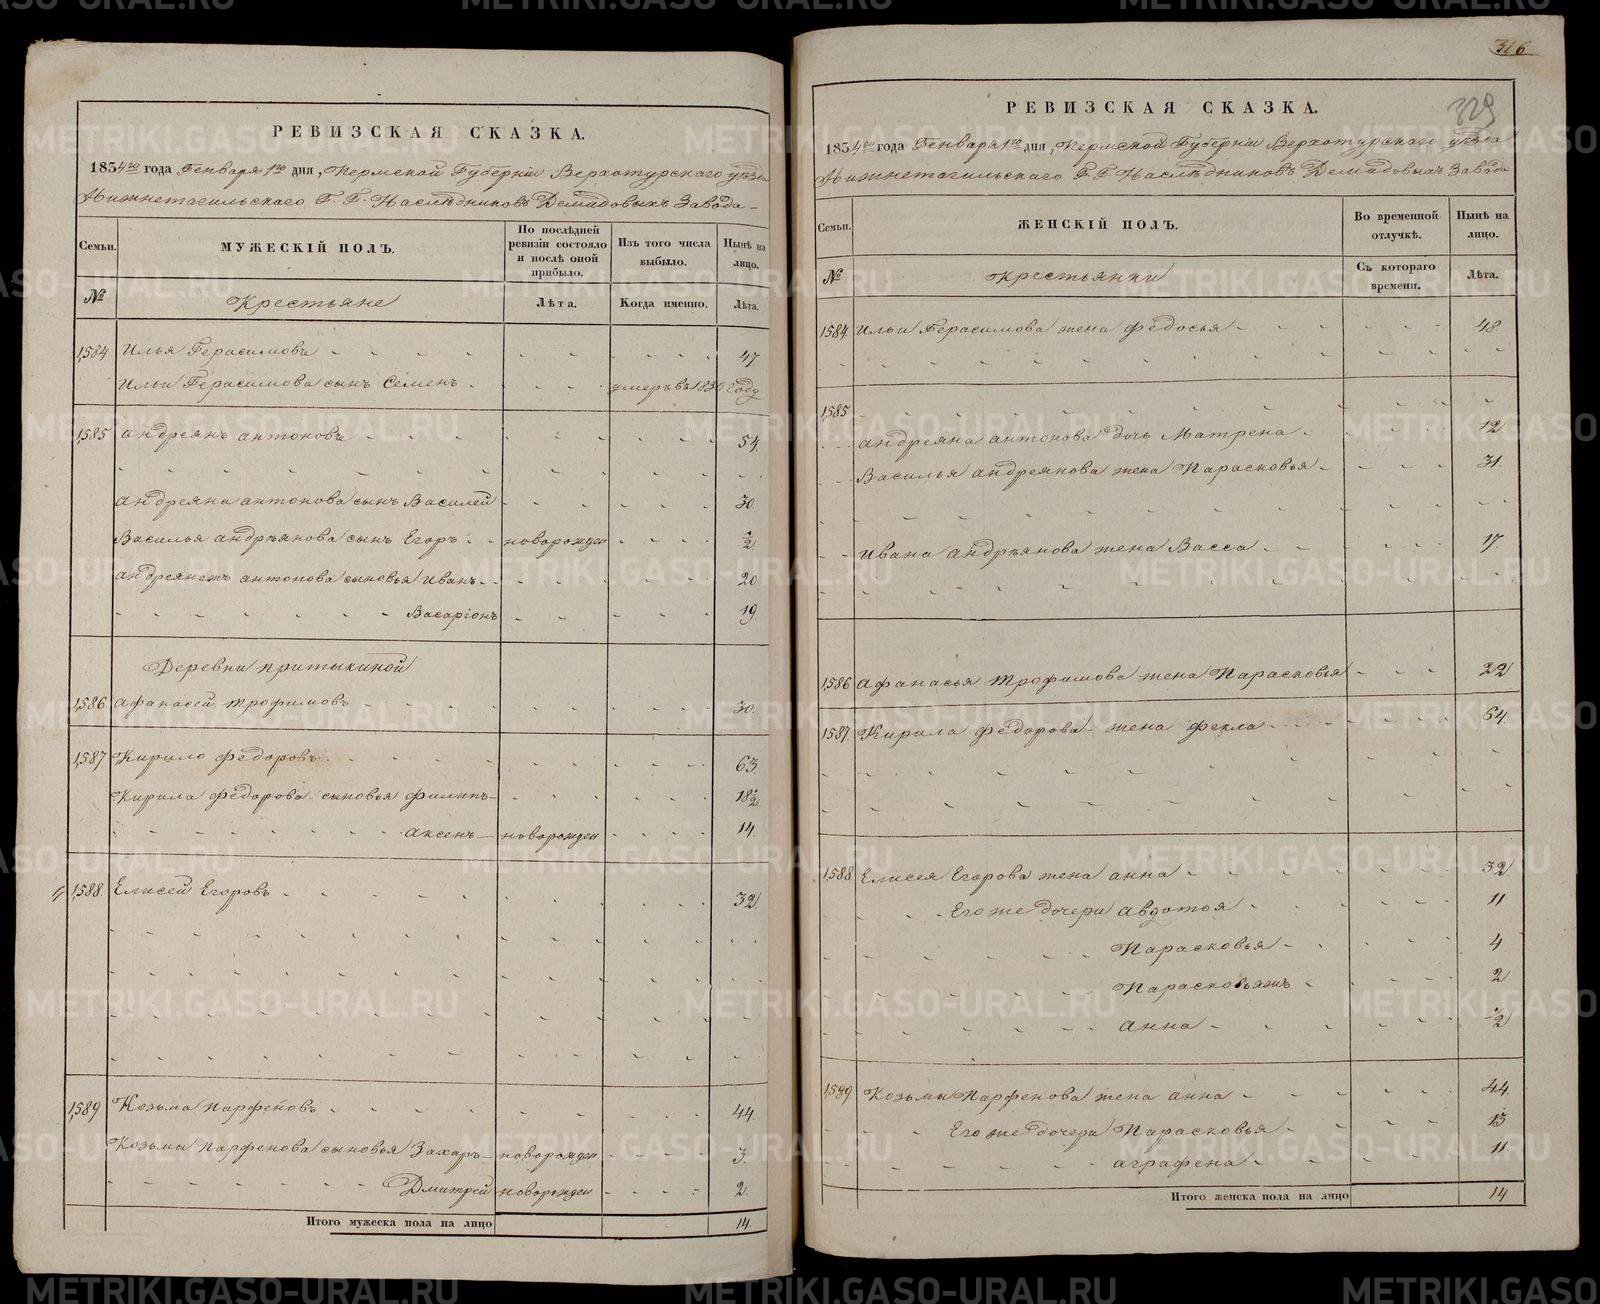 РЕВИЗСКАЯ СКАЗКА.
1834го года Генваря 1го дня, Пермской Губернiи Верхотурскаго уѣзда
Нижнетагильскаго Г. Г. Наслѣдниковъ Демидовыхъ Завода
Семьи.
МУЖЕСКIЙ ПОЛЪ.
По послѣдней ревизiи состояло и послѣ оной прибыло.
Изъ того числа выбыло.
Нынѣ на лицо.
№
Крестьяне
Лѣта.
Когда именно.
Лѣта.
1,584 Илья Герасимовъ 47
Ильи Герасимова сынъ Семенъ умеръ въ 1830 году
1,585 Андреянъ Антоновъ 54.
Андреяна Антонова сынъ Василей 30.
Василья Андрѣянова сынъ Егоръ новорожден ½
Андреянажъ Антонова сыновья Иванъ 20
Васарiонъ 19
Деревни Притыкиной
1,586 Афанасей Трофимовъ 30.
1,587 Кирило Федоровъ 63.
Кирила Федорова сыновья Филипъ 18½
Аксенъ новорожден 14.
1,588. Елисей Егоровъ 32.
1,589 Козьма Парфеновъ 44.
Козьмы Парфенова сыновья Захаръ новорожден 3.
Дмитрей новорожден 2.
Итого мужеска пола на лицо 14.
316
329
РЕВИЗСКАЯ СКАЗКА.
1834го года Генваря 1го дня, Пермской Губернiи Верхотурскаго уѣзда
Нижнетагильскаго Г. Г. Наслѣдниковъ Демидовыхъ Завода
Семьи.
ЖЕНСКIЙ ПОЛЪ.
Во временной отлучкѣ.
Нынѣ на лицо.
№
Крестьянки
Съ котораго времени.
Лѣта.
1,584. Ильи Герасимова жена Федосья 48
1,585
Андреяна Антонова дочь Матрена 12
Василья Андреянова жена Парасковья 31.
Ивана Андрѣянова жена Васса 17
1,586 Афанасья Трофимова жена Парасковья 22
1,587. Кирила Федорова жена Фекла 64.
1,588. Елисея Егорова жена Анна 32
Его же дочери Авдотья 11
Парасковья 4
Парасковьяжъ 2
Анна ½
1,589. Козьмы Парфенова жена Анна 44.
Его же дочери Парасковья 13
Аграфена 11.
Итого женска пола на лицо 14
METRIKI.GASO-URAL.RU